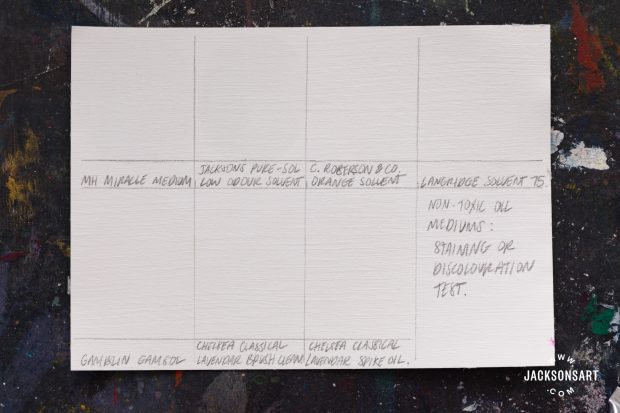 MH MIRACLE MEDIUM
JACKSON'S PURE-SOL
LOW ODOUR SOLVENT
C. ROBERSON & CO.
ORANGE SOLVENT
LANGRIDGE SOLVENT 75.
NON-TOXIC OIL
MEDIUMS:
STAINING OR
DISCOLOURATION
TEST.
GAMBLIN GAMSOL
CHELSEA CLASSICAL
LAVENDAR BRUSH CLEAN
CHELSEA CLASSICAL
LAVENDAR SPIKE OIL.
WWW
JACKSONSART
.COM